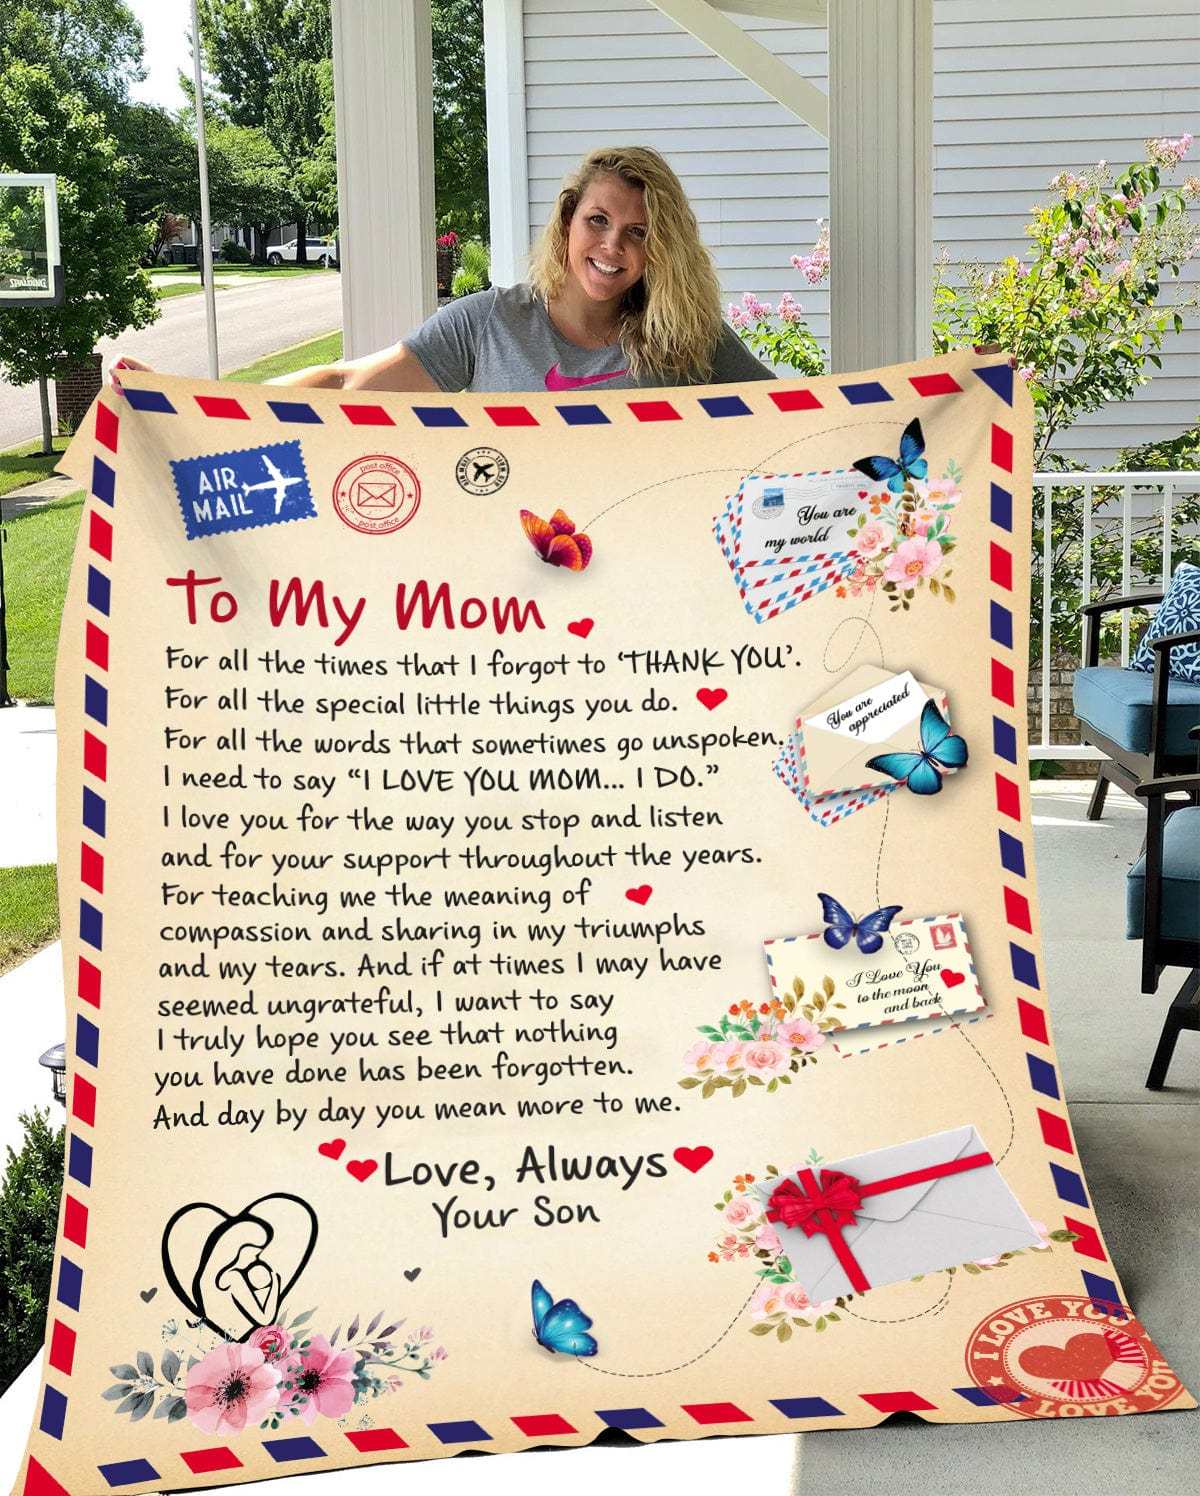 SPALDING
AIR
MAIL
post office
post office
AIR MAIL
AIR MAIL
You are
my world
To My Mom
For all the times that I forgot to ‘THANK YOU’.
For all the special little things you do.
For all the words that sometimes go unspoken.
I need to say “I LOVE YOU MOM... I DO.”
I love you for the way you stop and listen
and for your support throughout the years.
For teaching me the meaning of
compassion and sharing in my triumphs
and my tears. And if at times I may have
seemed ungrateful, I want to say
I truly hope you see that nothing
you have done has been forgotten.
And day by day you mean more to me.
Love, Always
Your Son
You are
appreciated
I Love You
to the moon
and back
I LOVE YOU
I LOVE YOU